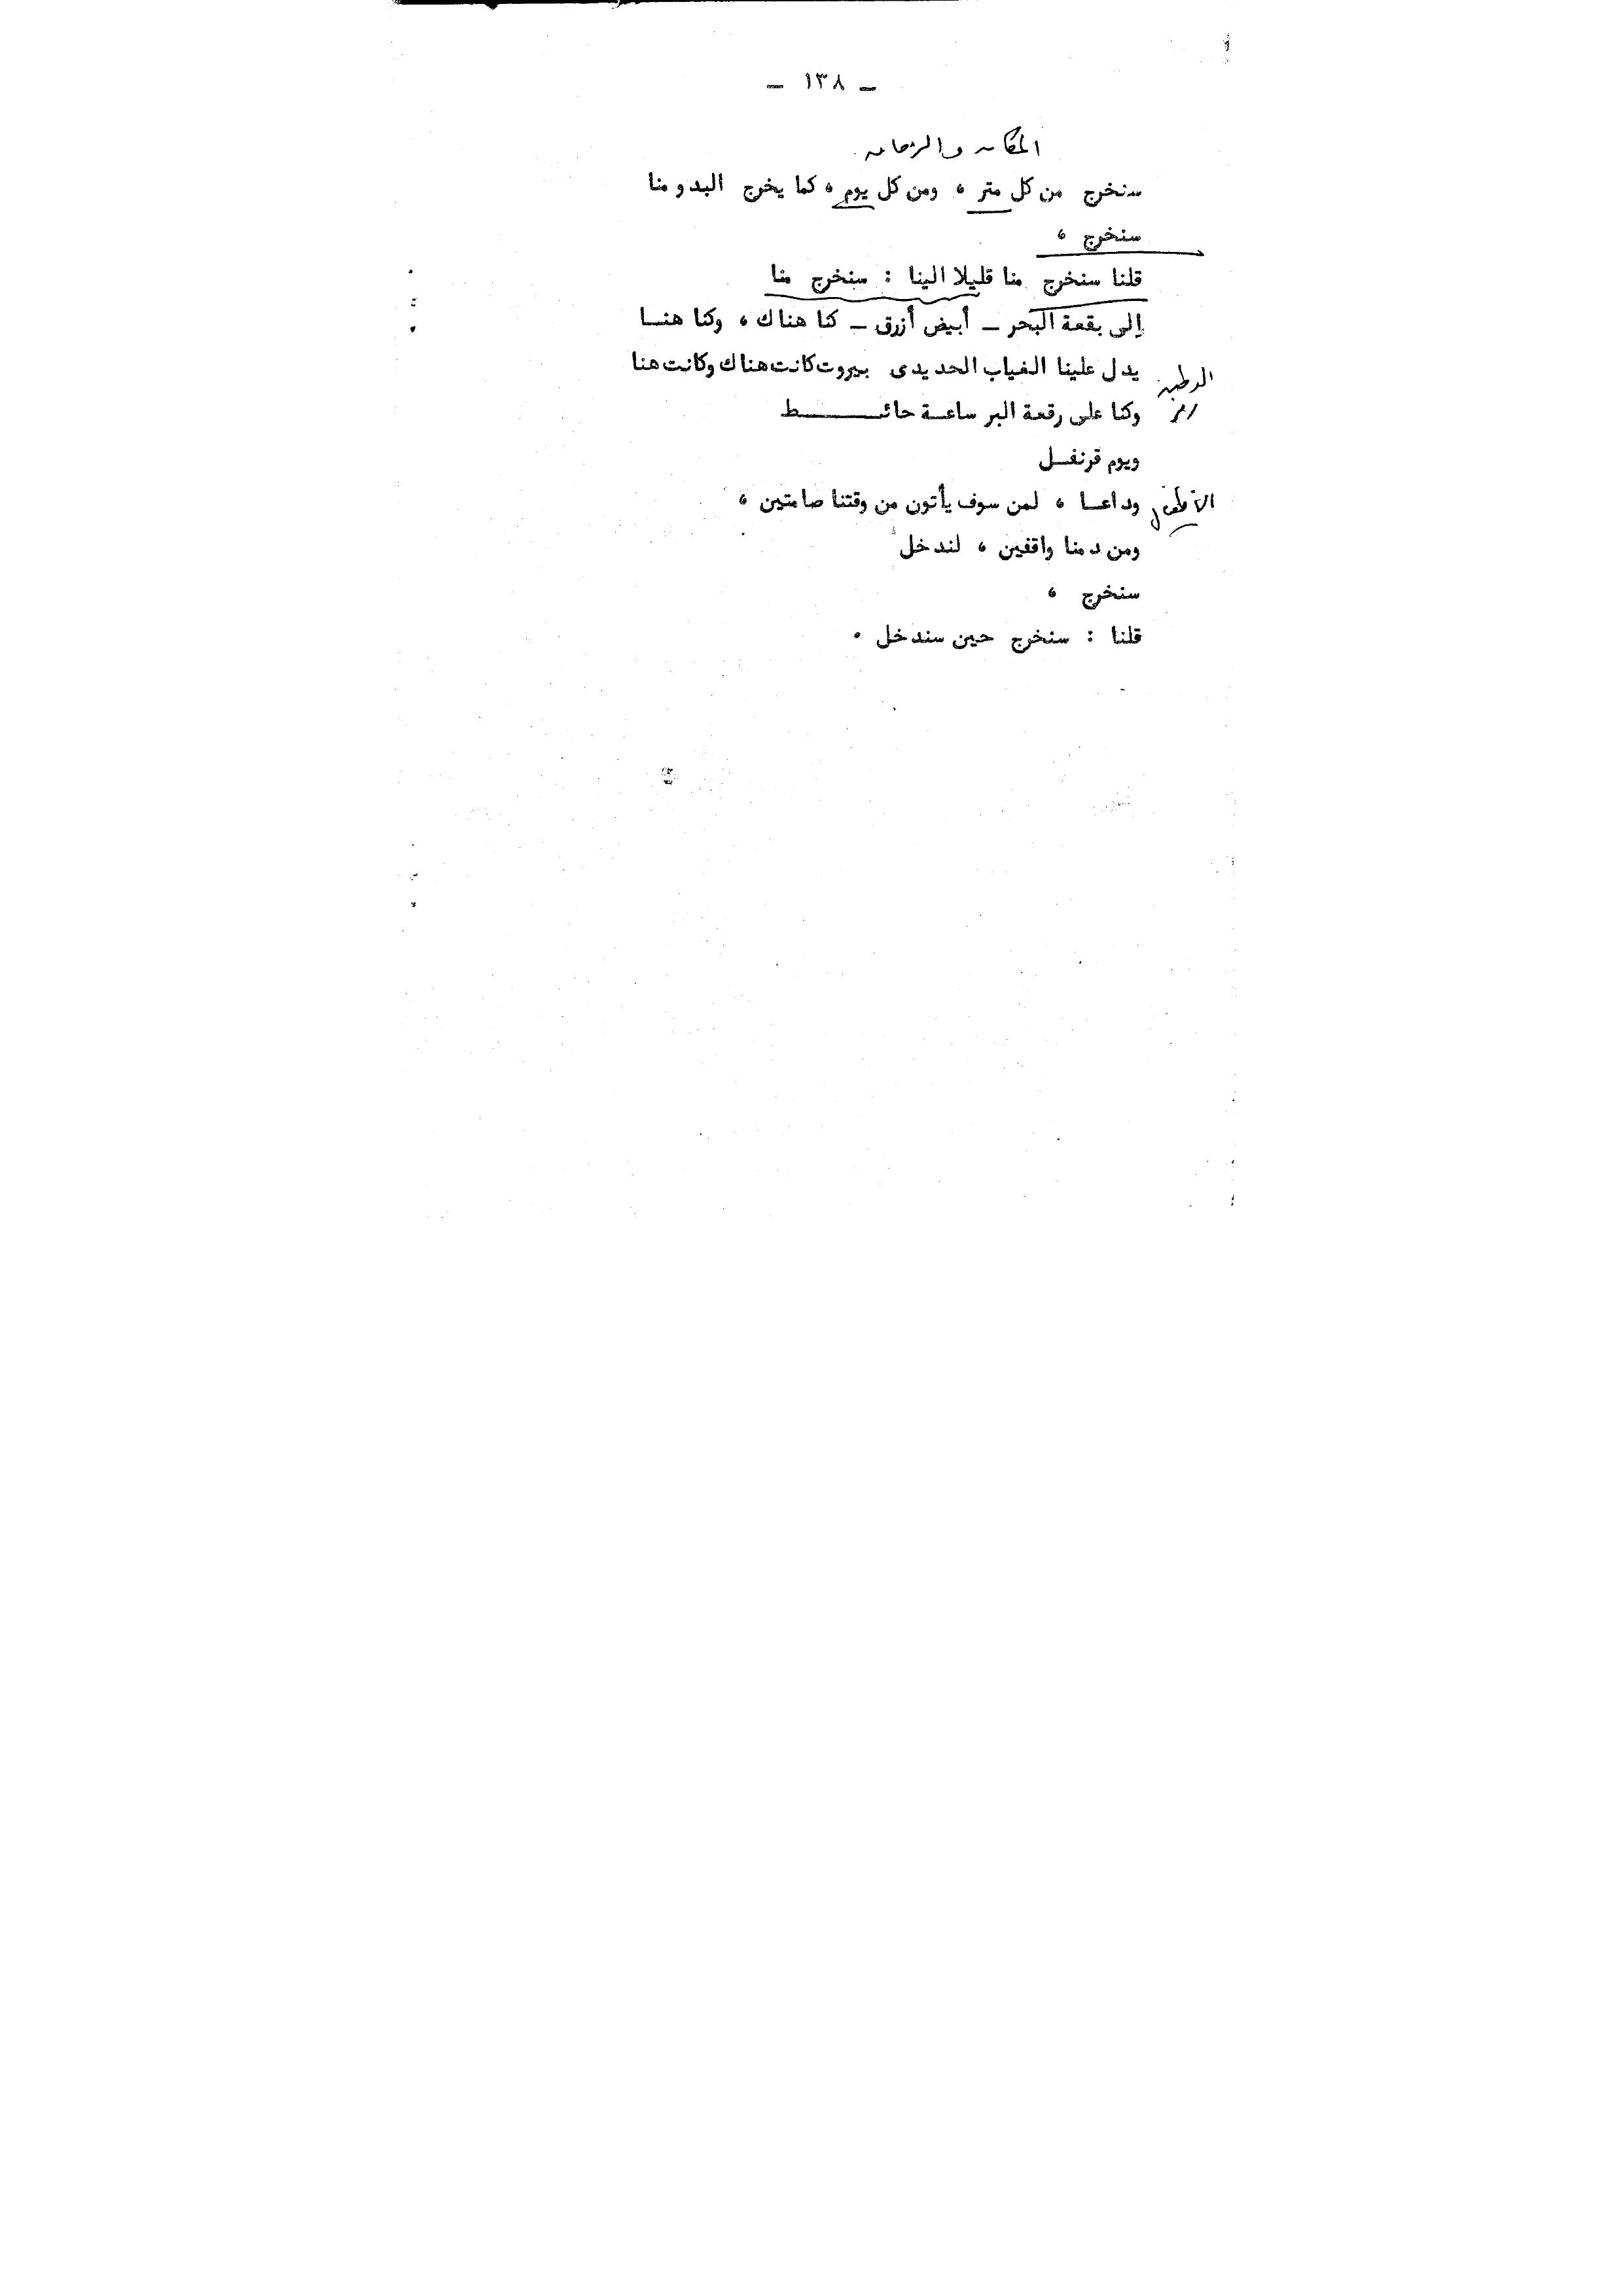 ـ ١٣٨ ـ
المكان والزمان
سنخرج من كل متر ، ومن كل يوم ، كما يخرج البدو منا
سنخرج ،
قلنا سنخرج منا قليلا الينا : سنخرج منا
إلى بقعة البحر ـ أبيض أزرق ـ كنا هناك ، وكنا هنـا
يدل علينا الغياب الحديدى بيروت كانت هناك وكانت هنا
وكنا على رقعة البر ساعـة حائــــــــط
ويوم قرنفـل
وداعـا ، لمن سوف يأتون من وقتنا صامتين ،
الأطفال
ومن دمنا واقفين ، لندخل
سنخرج ،
قلنا : سنخرج حين سندخل .